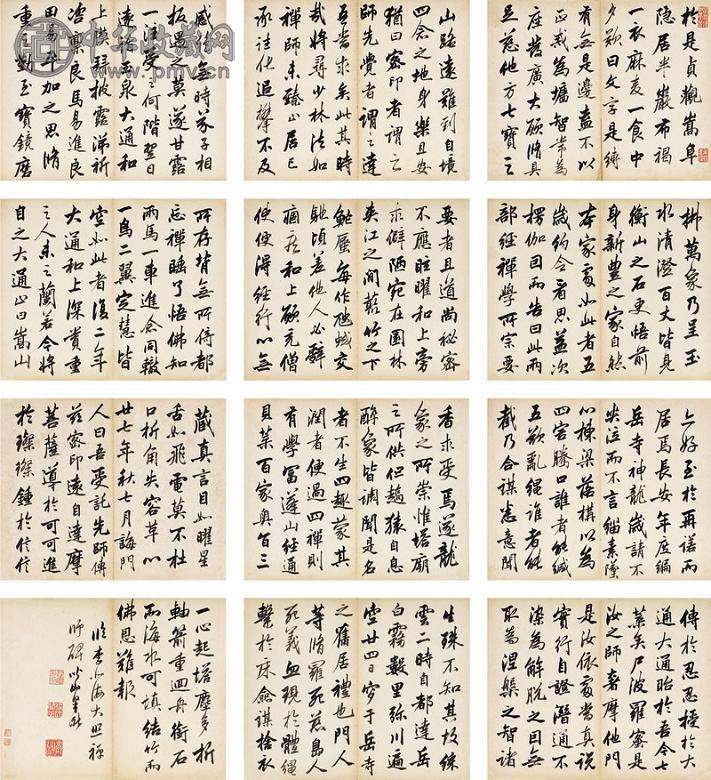 於是貞觀嵩阜
隱居半巖布褐
一衣麻麦一食中
夕歎曰文字是縛
有無是邊蓋不以
正戒為墻智常為
座發廣大願脩具
足慈他方七寶三
山路遠難到自境
四念之地身樂且安
猶曰密印者謂之
師先覺者謂之達
吾當求矣此其時
哉將尋少林法如
禪師未臻止居已
承往化追攀不及
感緣無時芥子相
投遇之莫遂甘露
一注受之何階翌日
遠詣玉泉大通和
上膜拜披露涕祈
咨勤良馬易進良
田易平加之思脩
重之勤至寶鏡磨
拂萬象乃呈玉
水清澄百丈皆見
衡山之石更悟前
身新豐之家自然
本家處如此者五
歲約令看思益次
楞伽因而告曰此兩
部經禪學所宗要
要者且道尚秘密
不應眩曜和上旁
求僻陋宛在園林
夾江之間竹之下
蠆每作虺蜮交
馳頃羞他人必辭
痼疾和上願充僧
使便得經行以無
所存背無所得都
忘禪睡了悟佛知
兩馬一車進念同轍
一鳥二翼定慧皆
空如此者復二年
大通和上深貴重
之人未之蘭若令將
自之大通止曰嵩山
亦好至於再諾而
居焉長安年度編
岳寺神龍歲請不
泣而不言緇素墮
心棟梁落構以為
四害騰口誰者能緘
五欲亂繩誰者能
截乃合謀悉意聞
香求受焉遂龍
象之所崇惟塔廟
之所供但趨猿自息
醉象皆調聞是名
者不生四趣蒙其
潤者便過四禪則
有學富蓬山經通
貝葉百家奥旨三
藏真言目如曜星
舌如飛電莫不杜
口折角失容革心
廿七年秋七月誨門
人曰吾受託先師傳
茲密印遠自達摩
菩薩導於可可進
於璨璨鍾於信信
傳於忍忍授於大
通大通貽於吾今七
葉矣尸波羅蜜是
汝之師奢摩他門
是汝依處當真說
實行自證潛通不
染為解脫之因無
取為涅槃之智諸
生殊不知其故殊
雲二時自都達岳
白霧數里彌川遍
空廿四日窆于岳寺
之舊居禮也門人
等脩羅死慕島人
死義血現於體繩
繫於床僉謀捨衣
一心起塔塵多折
軸箭重迴舟銜石
而海水可填結竹而
佛恩難報
臨李北海大照禪
師碑
www.pmv.cn